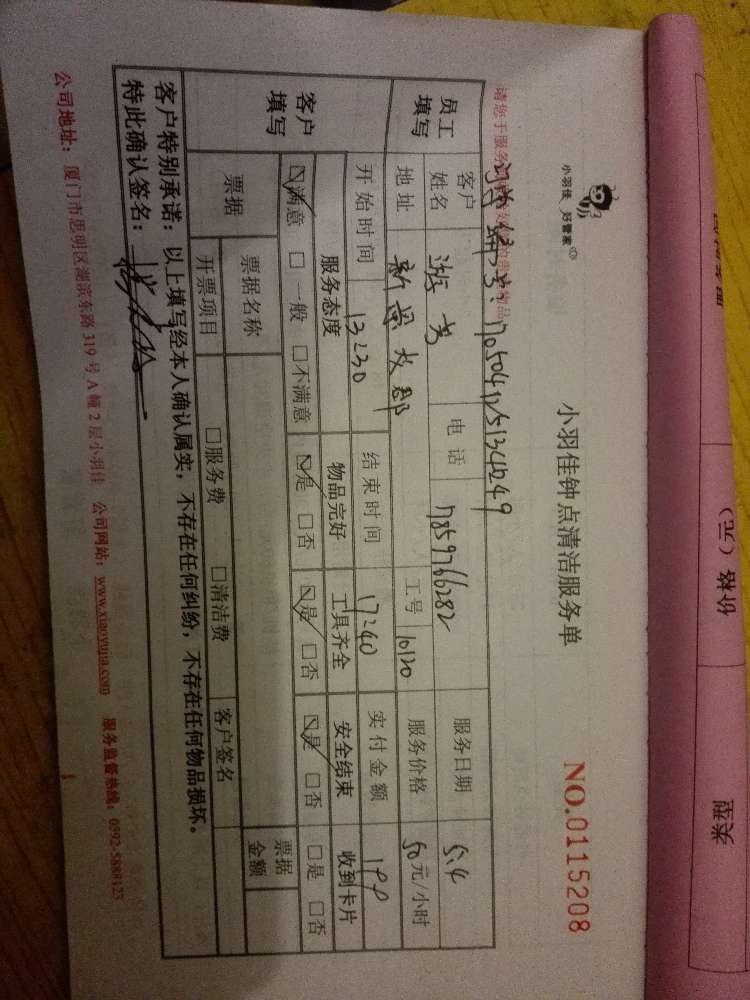 小羽佳 好管家
小羽佳钟点清洁服务单
NO.0115208
请您于服务
物品
170504112151344249
员工填写
客户姓名
电话 17859766282
服务日期 5.4
地址
工号 10120
服务价格 50元/小时
客户填写
开始时间 13:30
结束时间 17:40
实付金额 199
服务态度 物品完好 工具齐全 安全结束 收到卡片
☑满意 □一般 □不满意 ☑是 □否 ☑是 □否 ☑是 □否 □是 □否
票据 票据名称 票据金额
开票项目 □服务费 □清洁费 客户签名
客户特别承诺:以上填写经本人确认属实,不存在任何纠纷,不存在任何物品损坏。
特此确认签名:
公司地址:厦门市思明区湖滨东路319号A幢2层小羽佳 公司网站:www.xiaoyujia.com 服务监督热线:0592-5888123
价格(元)